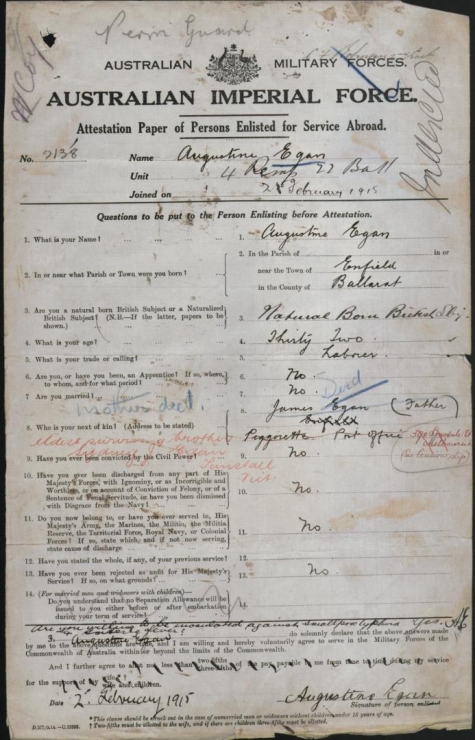 Perm Guard
AUSTRALIAN MILITARY FORCES.
AUSTRALIAN IMPERIAL FORCE.
Attestation Paper of Persons Enlisted for Service Abroad.
No. 2138 Name Augustine Egan
Unit 4 22 Batt
Joined on 2 February 1915
Questions to be put to the Person Enlisting before Attestation.
1. What is your Name? ... ... ... 1. Augustine Egan
2. In or near what Parish or Town were you born? ... 2. In the Parish of in or
near the Town of Enfield
in the County of Ballarat
3. Are you a natural born British Subject or a Naturalized British Subject? (N.B.—If the latter, papers to be shown.) 3. Natural Born British Subj.
4. What is your age? ... ... ... 4. Thirty Two
5. What is your trade or calling? ... 5. Laborer
6. Are you, or have you been, an Apprentice? If so, where, to whom, and for what period? 6. No
7. Are you married? ... ... 7. No
Died
Mother dec'd.
8. Who is your next of kin? (Address to be stated) 8. James Egan (Father)
Enfield
Post Office
eldest surviving brother
Sydney J. Egan
9. Have you ever been convicted by the Civil Power? 9. No
Tunstall
Vic
10. Have you ever been discharged from any part of His Majesty's Forces, with Ignominy, or as Incorrigible and Worthless, or on account of Conviction of Felony, or of a Sentence of Penal Servitude, or have you been dismissed with Disgrace from the Navy? 10. No
11. Do you now belong to, or have you ever served in, His Majesty's Army, the Marines, the Militia, the Militia Reserve, the Territorial Force, Royal Navy, or Colonial Forces? If so, state which, and if not now serving, state cause of discharge 11. No
12. Have you stated the whole, if any, of your previous service? 12.
13. Have you ever been rejected as unfit for His Majesty's Service? If so, on what grounds? 13. No
14. (For married men and widowers with children)
Do you understand that no Separation Allowance will be issued to you either before or after embarkation during your term of service? 14.
Are you willing to be inoculated against smallpox typhoid Yes. AE
3. Augustine Egan do solemnly declare that the above answers made
by me to the above questions are true, and I am willing and hereby voluntarily agree to serve in the Military Forces of the
Commonwealth of Australia within or beyond the limits of the Commonwealth.
And I further agree to allot not less than two-fifths of the pay payable to me from time to time during my service
for the support of my wife
wife and children.
Date 2. February 1915 Augustine Egan
Signature of person enlisted.
*This clause should be struck out in the case of unmarried men or widowers without children under 18 years of age.
† Two-fifths must be allotted to the wife, and if there are children three-fifths must be allotted.